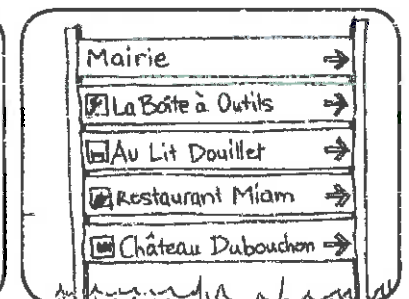 Mairie
La Boîte à Outils
Au Lit Douillet
Restaurant Miam
Château Dubouchon